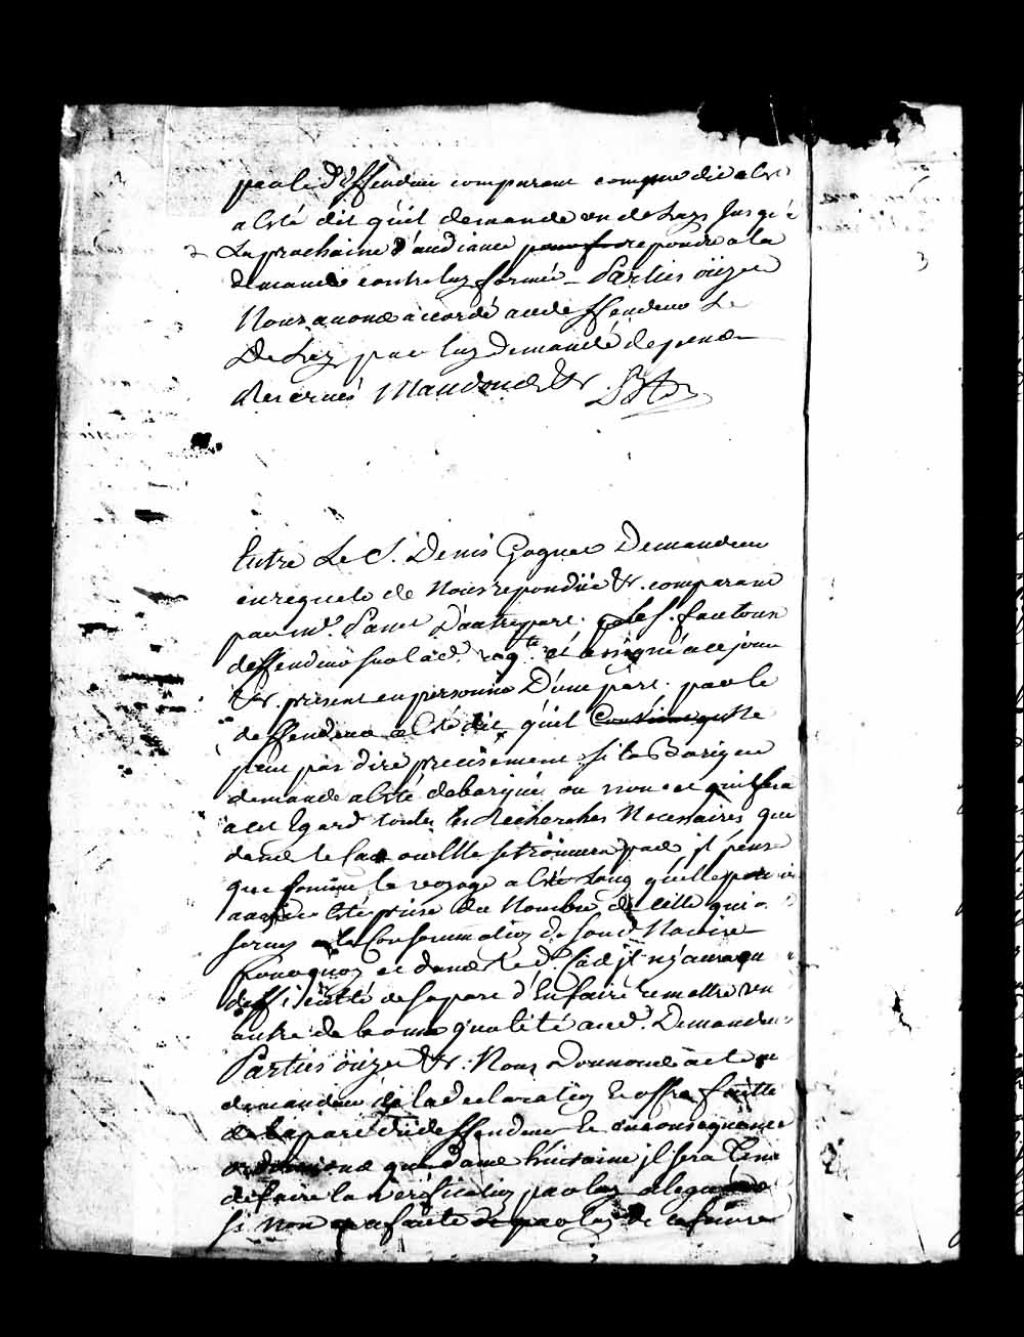 par le deffendeur comparant comme dit est
a Esté dit qu'il demande un delays Jusqu'à
La prochaine d'audiance pour fre repondre a la
demande contre luy formée _ Parties öuyes
Nous avons accordé au deffendeur Le
Delay par luy demandé depens
Reservés Mandons &c.
Entre Le S. Denis Gagner Demandeur
en requete de Nous repondüe &c. comparant
par Mr. Panet D'autre part. Le S. 
deffendeur sur lad. reqte. et assigné a ce jour
&c. present en personne D'une part. par le
deffendeur a Esté dit qu'il ne
peut pas dire precisement si la Barique
demandé a Esté debarqué ou non et qu'il fera
a cet Egard toutes les Recherches Necessaires que
dans le Cas ou Elle se trouvera pas il pense
que comme le voyage a Esté Long qu'elle
aura Esté prise du Nombre de Celle qui a
servy a la Consommation de son d. Navire
Pourquoy et dans led. Cas il n'y aura
difficulté de sa part d'En faire remettre un
autre de bonne qualité aud. Demandeur
Parties öuyes &c. Nous Donnons acte au
demandeur de la declaration & offre faitte
de la part du deffendeur & en consequence
ordonnons que dans huitaine il sera Tenu
de faire la verification par luy
si non et a faute de par luy de ce faire